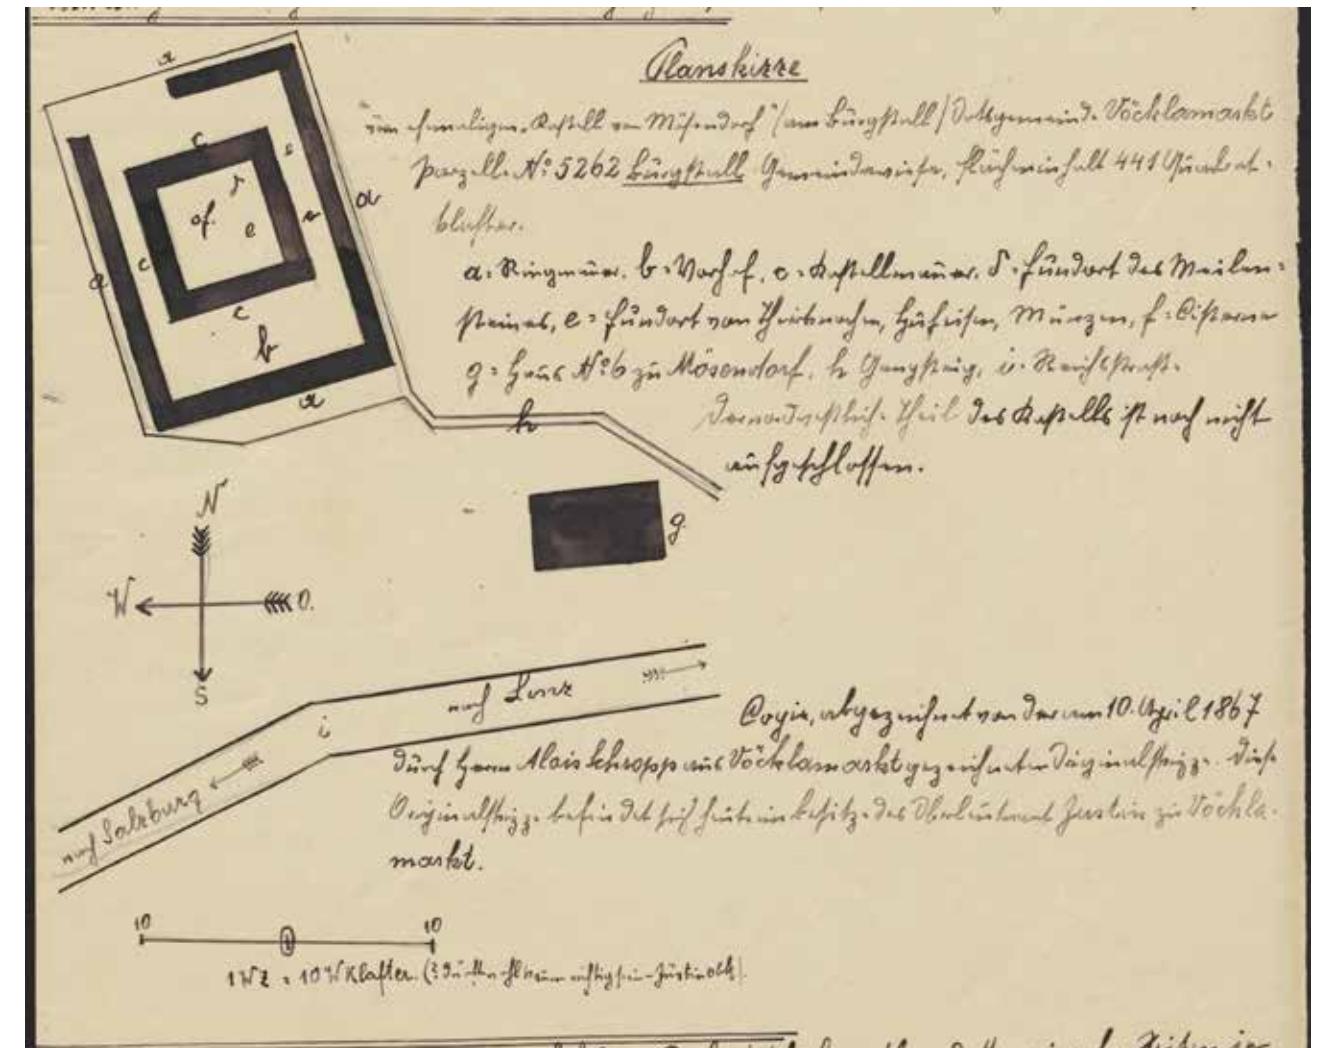 Planskizze
vom ehemaligen Kastell von Mösendorf "/am Bürgstall/ Ortsgemeinde Vöcklamarkt
Parzelle № 5262 Bürgstall Gemeindewiese, Flächeninhalt 441 Quadrat-
klafter.
a = Ringmauer, b = Vorhof, c = Kastellmauer, δ = Fundort des Meilen-
steines, e = Fundort von Thierknochen, Hufeisen, Münzen, f = Cisterne
g = Haus № 6 zu Mösendorf, h Gangsteig, i = Reichsstraße.
Der nordwestliche Theil des Kastells ist noch nicht
aufgeschlossen.
a
c
e
δ
f.
e
e
a
a
c
c
b
a
h
g.
N
W
O.
S
nach Linz
i
nach Salzburg
Copie, abgezeichnet von der am 10. April 1867
durch Herrn Alois Schropp aus Vöcklamarkt gezeichneten Originalskizze. Diese
Originalskizze befindet sich heute im Besitze des Oberleutnant Justin zu Vöckla-
markt.
10
10
1 W Z = 10 W Klafter.